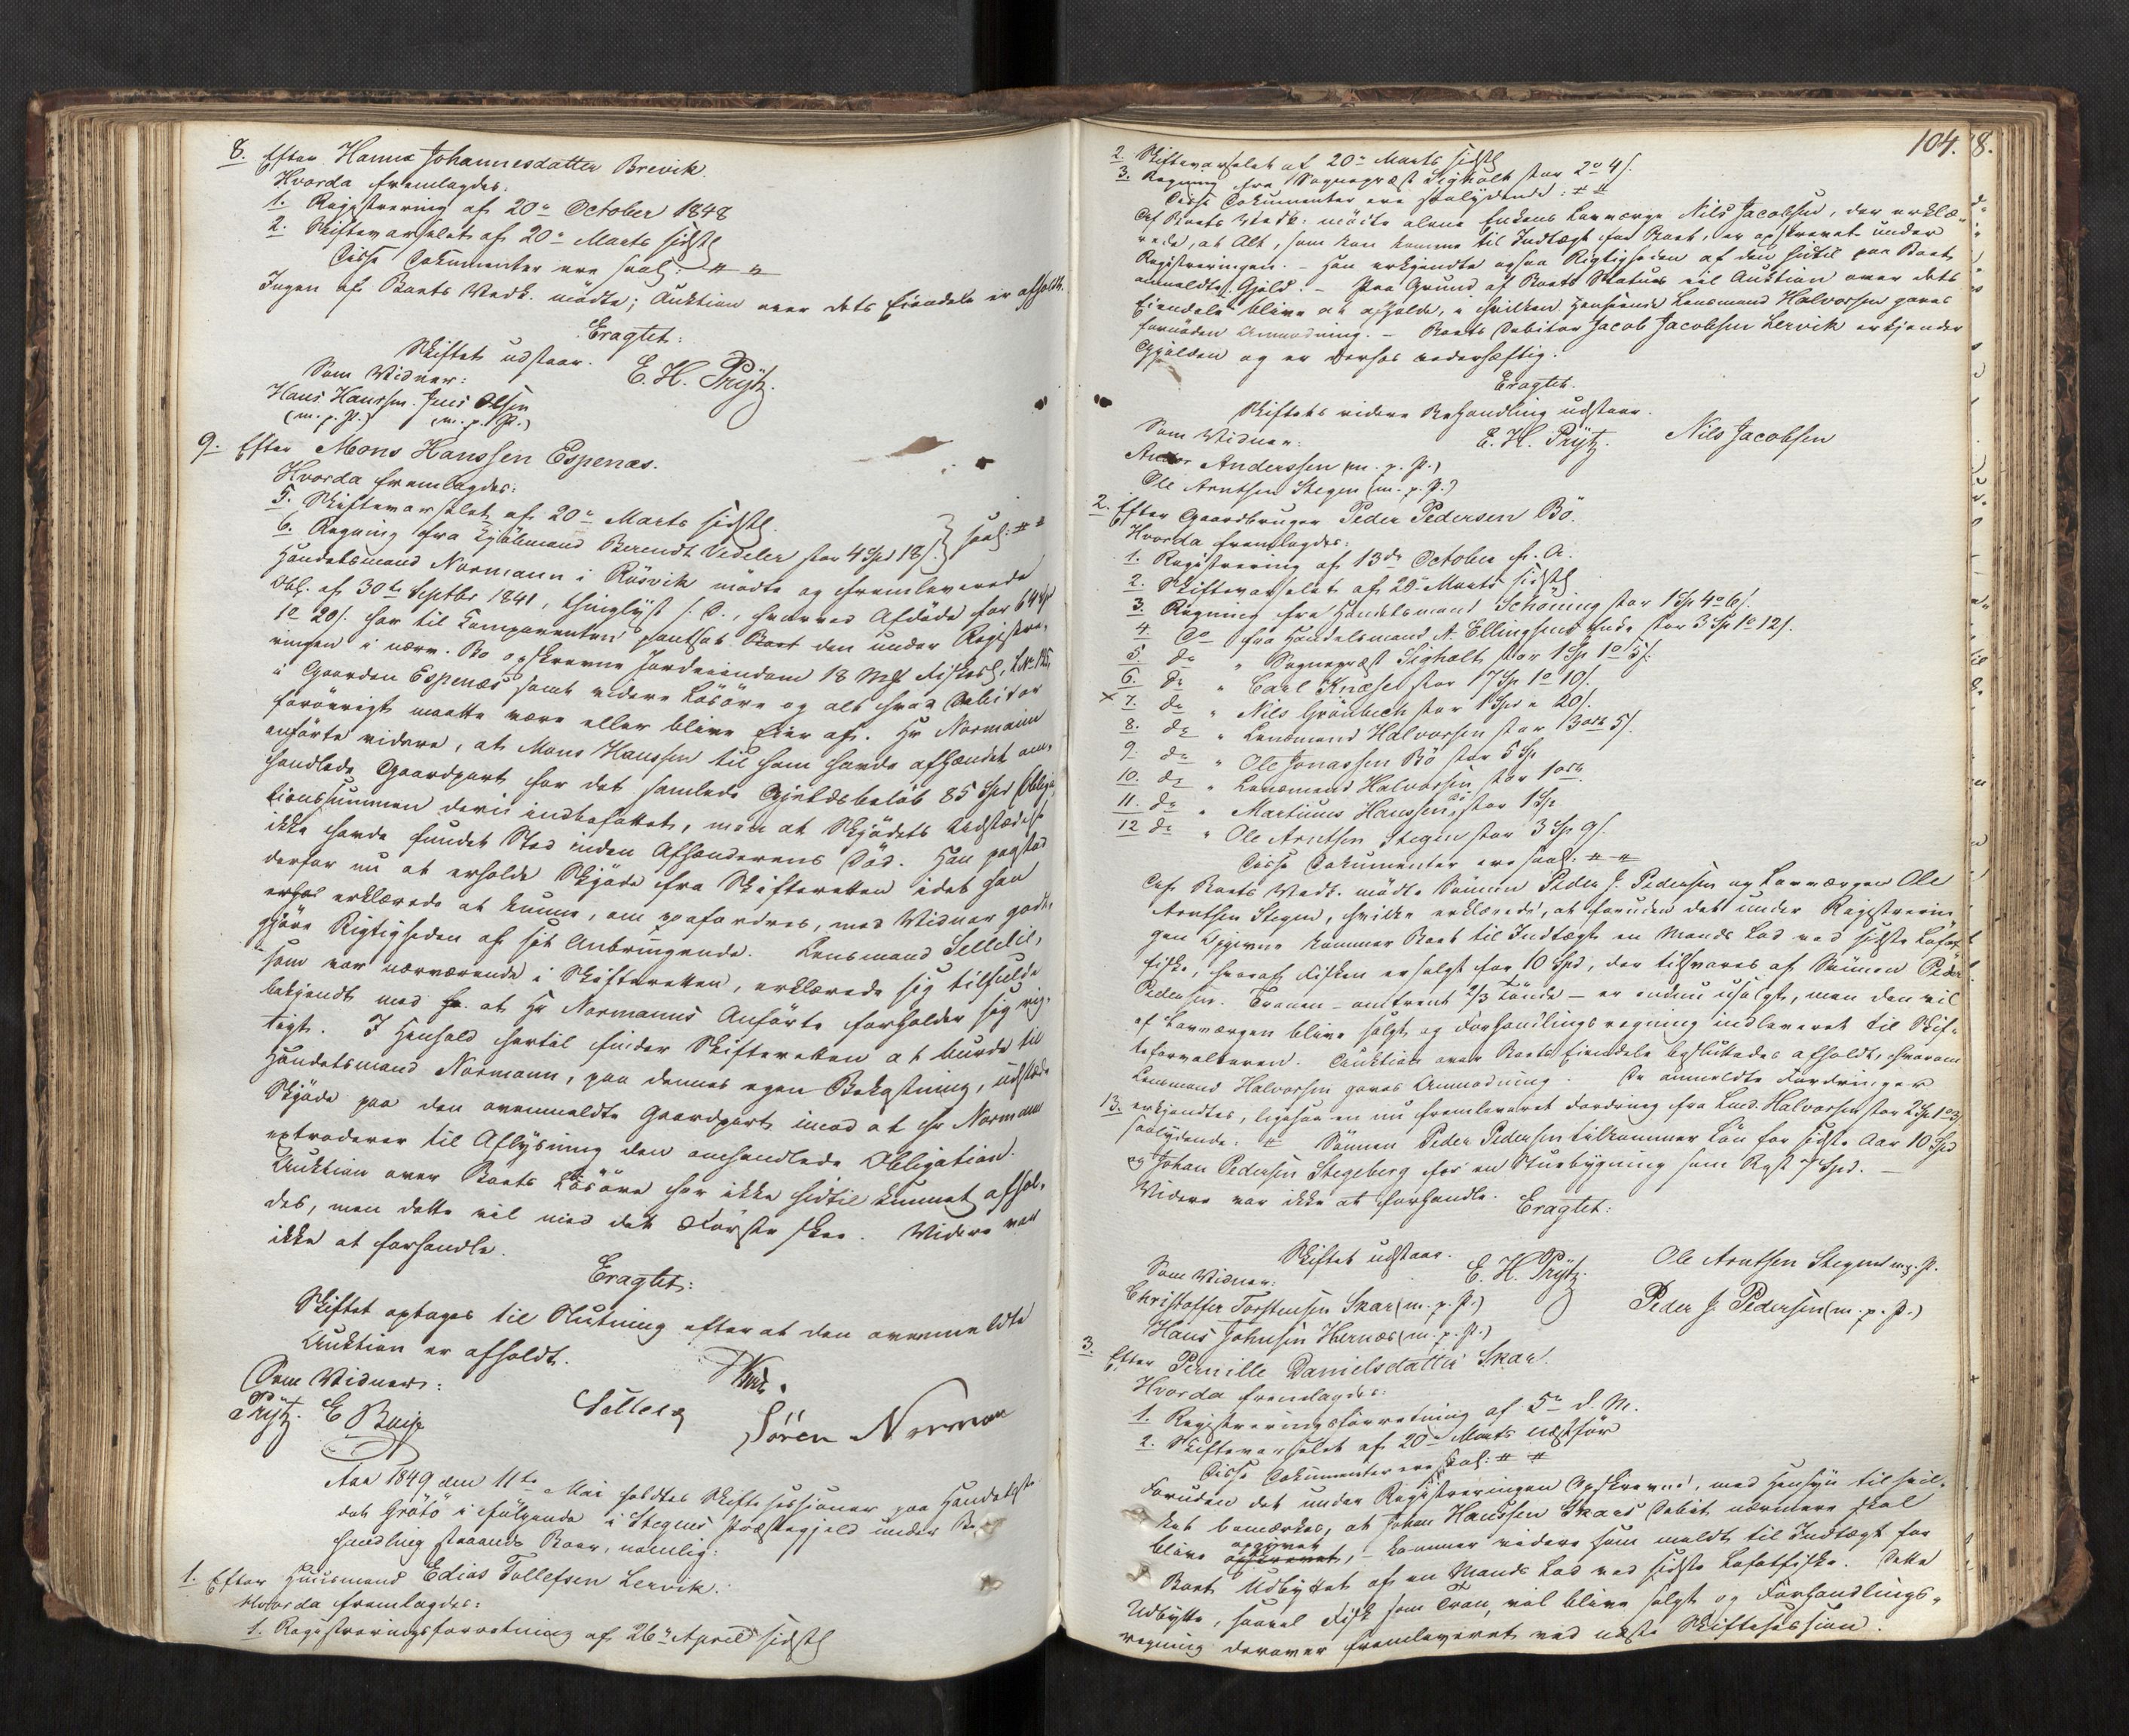 8. Efter Hanna Johannesdatter Brevik.
Hvorda fremlagdes:
1. Registrering af 20de October 1848
2. Skiftevarselet af 20de Marts sidstl
Disse Dokumenter ere saal: # #
Ingen af Boets Vedk. mödte; Auktion over dets Eiendele er afholdt.
Eragtet:
Skiftet udstaar.
E. H. Prÿtz.
Som Vidner:
Hans Hanssen. Jens Olsen
(m. p. P.) (m. p. P.)
9. Efter Mons Hanssen Espenæs.
Hvorda fremlagdes:
5. Skiftevarselet af 20de Marts sidstl.
6. Regning fra Kjöbmand Berendt Vedeler stor 4 Spd 18 s. } saal: # #
Handelsmand Normann i Rösvik mödte og fremleverede
Obl. af 30te Septbr 1841, thinglyst s. D., hvorved Afdöde for 64 Sp
1o 20 s. har til Comparenten pantsat Boet den under Registre-
ringen i nærv. Bo opskrevne Jordeiendom 18 Mk Fiskesl, LNo 125,
i Gaarden Espenæs samt videre Lösöre og alt hvad Debitor
forövrigt maatte være eller blive Eier af. Hr Normann
anförte videre, at Mons Hanssen til ham havde afhændet om-
handlede Gaardpart for det samlede Gjeldsbelöb 85 Spd (Obliga-
tionssummen deri indbefattet, men at Skjödets Udstædelse
ikke havde fundet Sted inden Afhænderens Död. Han paastod
derfor nu at erholde Skjöde fra Skifteretten idet han
erhol erklærede at kunne, om paafordres, med Vidner godt-
gjöre Rigtigheden af sit Anbringende. Lensmand Sellelie,
som var nærværende i Skifteretten, erklærede sig tilfulde
bekjendt med hr. at Hr Normanns Anförte forholder sig rig-
tigt. I Henhold hertil finder Skifteretten at burde til
Handelsmand Normann, paa dennes egen Bekostning, udstæde
Skjöde paa den ovenmeldte Gaardpart imod at hr Normann
extraderer til Aflysning den omhandlede Obligation.
Auktion over Boets Lösöre har ikke hidtil kunnet afhol-
des, men dette vil med det Förste skee. Videre var
ikke at forhandle.
Eragtet:
Skiftet optages til Slutning efterat den ovenmeldte
Auktion er afholdt.
Som Vidner:
Prÿtz. E
Sören Norman
Aar 1849 den 11te Mai holdtes Skiftesessioner paa Handelsste-
det Grötö i fölgende i Stegens Præstegjeld under Be-
handling staaende Boer, nemlig:
1. Efter Huusmand Edias Tollefsen Lervik.
Hvorda fremlagdes:
1. Registreringsforretning af 26de April sidstl
104.
8.
2. Skiftevarselet af 20de Marts sidstl
3. Regning fra Sognepræst Sigholt stor 2o 4 s.
Disse Dokumenter ere saalydende: # #
Af Boets Vedk. mödte alene Enkens Laugværge Nils Jacobsen, der erklæ-
rede, at Alt, som kan komme til Indtægt for Boet, er opskrevet under
Registreringen. - Han erkjendte ogsaa Rigtigheden af den hidtil paa Boet
anmeldte Gjeld. - Paa Grund af Boets Status vil Auktion over dets
Eiendele blive at afholde, i hvilken Henseende Lensmand Halvorsen gaves
fornöden Anmodning. - Boets Debitor Jacob Jacobsen Lervik erkjender
Gjælden og er derhos vederhæftig.
Eragtet.
Skiftets videre Behandling udstaar.
Som Vidner:
E. H. Prÿtz. Nils Jacobsen
Anderssen (m. p. P.)
Ole Arntsen Stegen (m. p. P.)
2. Efter Gaardbruger Peder Pedersen Bö.
Hvorda fremlagdes:
1. Registrering af 13de October f. A.
2. Skiftevarselet af 20de Marts sidstl
3. Regning fra Handelsmand Schöning stor 1 Sp 4o 6 s.
4. Do fra Handelsmand A. Ellingsens Enke stor 3 Sp 1o 12 s.
5. do " Sognepræst Sigholt stor 1 Sp 1o 5 s.
6. do " Carl Knæsel stor 17 Sp 1o 10 s.
x 7. do " Nils Grönbech stor 1 Spd " 20 s.
8. do " Lensmand Halvorssen stor 3 ort 5 s.
9. do " Ole Jonassen Bö stor 5 Sp
10. do " Lensmand Halvorsen stor 1 ort
11. do " Martinus Hanssen Bö stor 1 Sp
12 do " Ole Arntsen Stegen stor 3 Sp 9 s.
Disse Dokumenter ere saal: # #
Af Boets Vedk. mödte Sönnen Peder J. Pedersen og Laugværgen Ole
Arntsen Stegen, hvilke erklærede, at foruden det under Registrerin-
gen Opgivne kommer Boet til Indtægt en Mands Lod ved sidste Lofot-
fiske, hvoraf Fisken er solgt for 10 Spd, der tilsvares af Sönnen Peder
Pedersen. Tranen - omtrent 2/3 Tönde - er endnu usolgt, men den vil
af Laugværgen blive solgt og Forhandlingsregning indleveret til Skif-
teforvalteren. Auktion over Boets Eiendele besluttedes afholdt, hvorom
Lensmand Halvorsen gaves Anmodning De anmeldte Fordringer
13. erkjendtes, ligesaa en nu fremleveret Fordring fra Lmd. Halvorsen stor 2 Sp 1o 3 s
saalydende: # Sönnen Peder Pedersen tilkommer Lön for sidste Aar 10 Spd
og Johan Pedersen Stegeberg for en Stuebygning som Rest 7 Spd. -
Videre var ikke at forhandle.
Eragtet:
Skiftet udstaar.
Som Vidner:
E. H. Prÿtz. Ole Arntsen Stegen m. p. P.
Christoffer Torstensen Skar (m. p. P.) Peder J. Pedersen (m. p. P.)
Hans Johnsen Hernæs (m. p. P.)
3. Efter Pernille Danielsdatter Skar.
Hvorda fremlagdes:
1. Registreringsforretning af 5te d. M.
2. Skiftevarselet af 20de Marts næstför
Disse Dokumenter ere saal: # #
Foruden det under Registreringen Opskrevne, med Hensyn til hvil-
ket bemærkes, at Johan Hanssen Skars Debet nærmere skal
blive opskrevet opgivet, - kommer videre som meldt til Indtægt for
Boet Udbyttet af en Mands Lod ved sidste Lofotfiske. Dette
Udbytte, saavel Fisk som Tran, vil blive solgt og Forhandlings-
regning derover fremleveret ved næste Skiftesession.